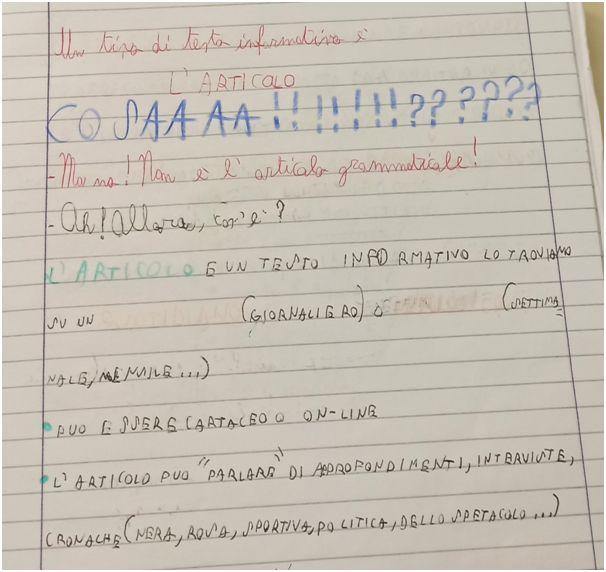 Un tipo di testo informativo è
L'ARTICOLO
COSAAAA!!!!!!!??????
- Ma no! Non è l'articolo grammaticale!
- Ah! Allora, cos'è?
L'ARTICOLO E UN TESTO INFORMATIVO LO TROVIAMO
SU UN (GIORNALIERO) O (SETTIMA=
NALE, MENSILE...)
• PUO ESSERE CARTACEO O ON-LINE
• L'ARTICOLO PUO "PARLARE" DI APPROFONDIMENTI, INTERVISTE,
CRONACHE (NERA, ROSA, SPORTIVA, POLITICA, DELLO SPETACOLO...)